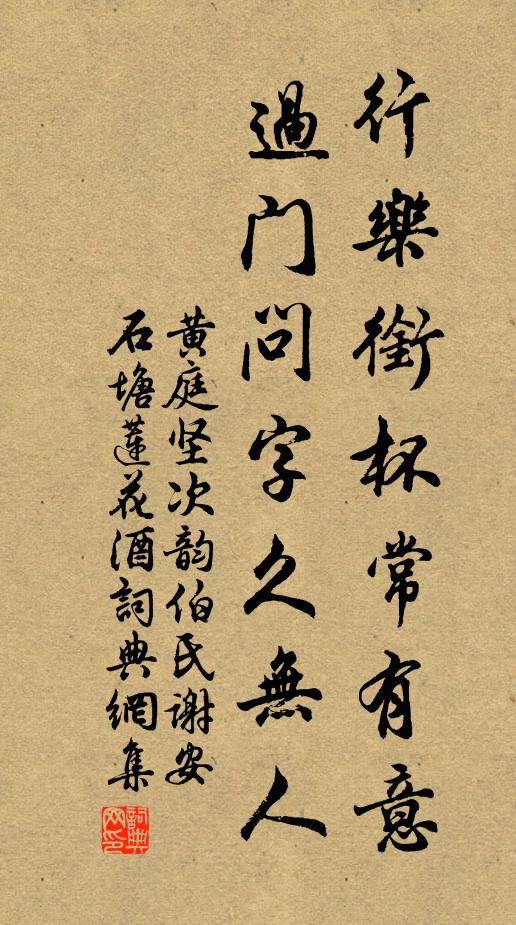 行樂銜杯常有意
過门问字久無人
黄庭坚次韵伯氏谢安
石塘蓮花酒詞典網集
詞典网印